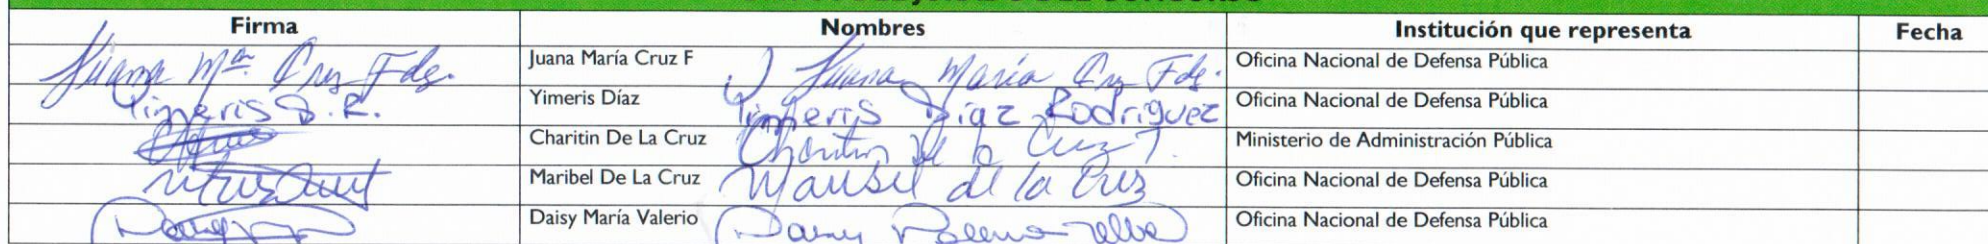 Firma Nombres Institución que representa Fecha
Juana Mª Cruz Fdg. Juana María Cruz F Juana María Cruz Fdg. Oficina Nacional de Defensa Pública
Yimeris D. R. Yimeris Díaz Yimeris Díaz Rodríguez Oficina Nacional de Defensa Pública
Charitin De La Cruz Charitin De la Cruz T. Ministerio de Administración Pública
Maribel De La Cruz Maribel de la Cruz Oficina Nacional de Defensa Pública
Daisy María Valerio Daisy Oficina Nacional de Defensa Pública